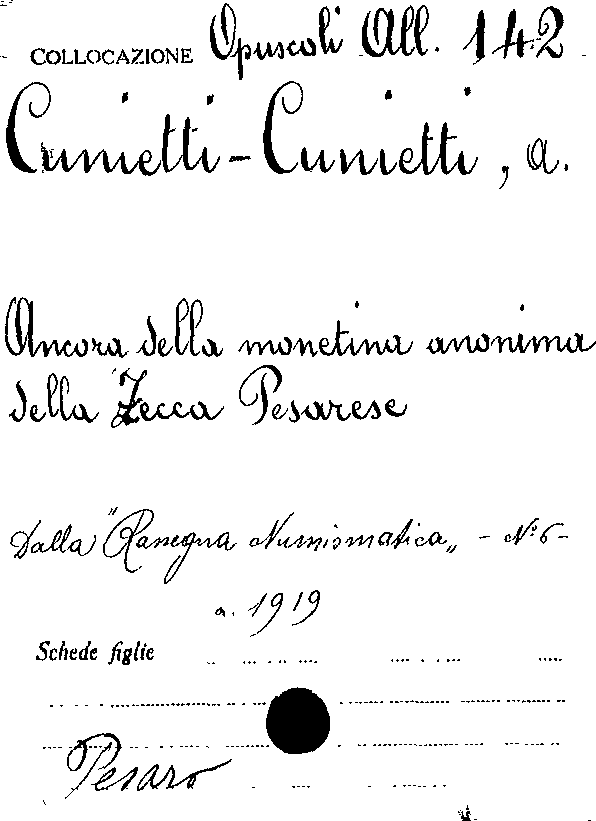 COLLOCAZIONE Opuscoli All. 142
Cunietti-Cunietti, a.
Ancora della monetina anonima
della Zecca Pesarese
Dalla "Rassegna Numismatica„ - N.º 6 -
a. 1919
Schede figlie
Pesaro